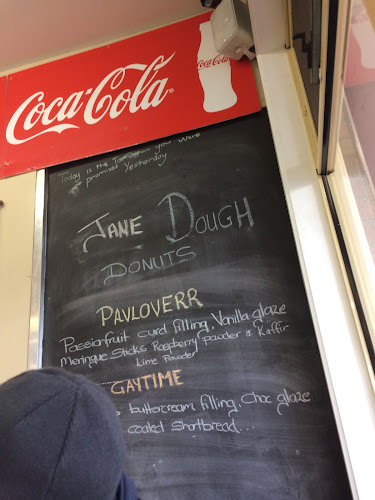 Coca-Cola
Coca-Cola
Today is the Tomorrow you were
promised Yesterday
JANE DOUGH
DONUTS
PAVLOVERR
Passionfruit curd filling, Vanilla glaze
Meringue Sticks Raspberry powder & Kaffir
Lime Powder
GAYTIME
buttercream filling, Choc glaze
coated Shortbread...